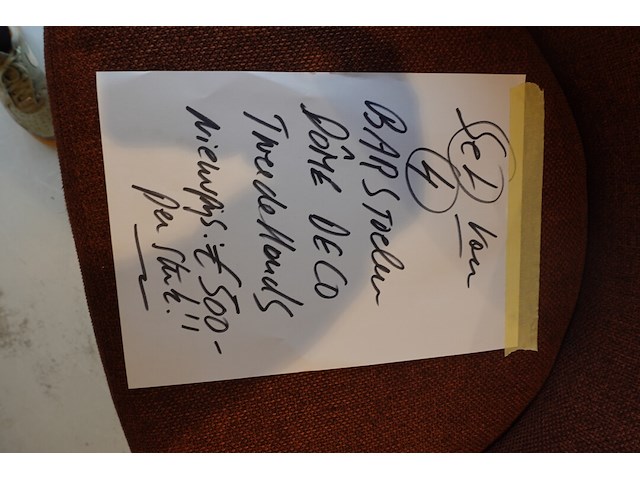 Set van
4
BARStoelen
DÔME DECO
TweedeHands
Nieuwprijs: € 500-
per stuk!!